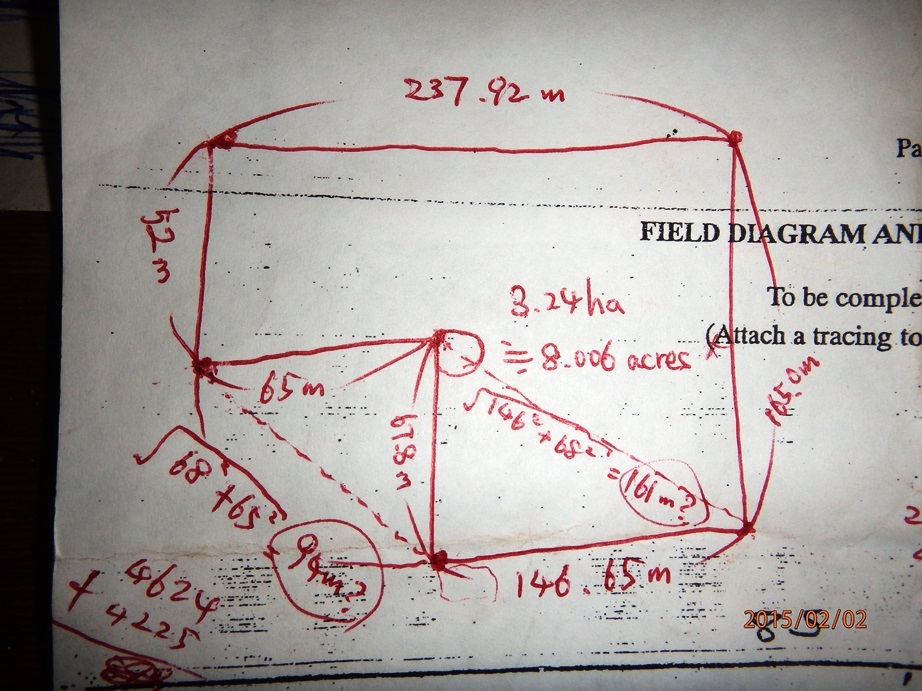 237.92 m
Pa
52 m
FIELD DIAGRAM AN
To be comple
(Attach a tracing to
3.24ha
≒ 8.006 acres
65 m
67.8 m
165.0m
√146² + 68²
= 161m?
√68² + 65²
94m?
146.65 m
4624
+ 4225
2015/02/02